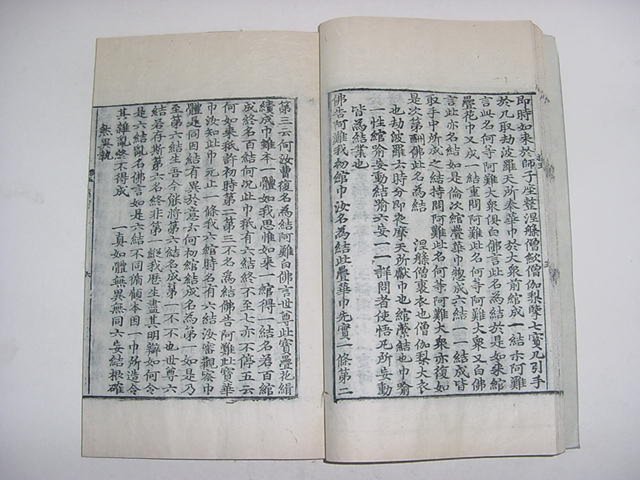 即時如來於師子座整涅槃僧斂僧伽梨擥七寶几引手
於几取劫波羅天所奉華巾於大衆前綰成一結示阿難
言此名何等阿難大衆俱白佛言此名爲結於是如來綰
疊花巾又成一結重問阿難此名何等阿難大衆又白佛
言此亦名結如是倫次綰疊華巾揔成六結一一結成皆
取手中所成之結持問阿難此名何等阿難大衆亦復如
是次第酬佛此名爲結 涅槃僧裏衣也僧伽梨大衣
也劫波羅六時分即夜摩天所獻巾也綰縈結也巾喩
一性綰喩妄動結喩六妄一一詳問者使悟凡所妄動
皆爲結業也
佛告阿難我初綰巾汝名爲結此疊華巾先實一條第二
第三云何汝曹復名爲結阿難白佛言世尊此寶疊花緝
績成巾雖本一體如我思惟如來一綰得一結名若百綰
成終名百結何況此巾秖有六結終不至七亦不停五云
何如來秖許初時第二第三不名爲結佛告阿難此寶華
巾汝知此巾元止一條我六綰時名有六結汝審觀察巾
體是同因結有異於意云何初綰結成名爲第一如是乃
至第六結生吾今欲將第六結名成第一不不也世尊六
結若存斯第六名終非第一縱我歷生盡其明辯如何令
是六結亂名佛言如是六結不同循顧本因一巾所造令
其雜亂終不得成 一真如體無異無同六妄結根確
異